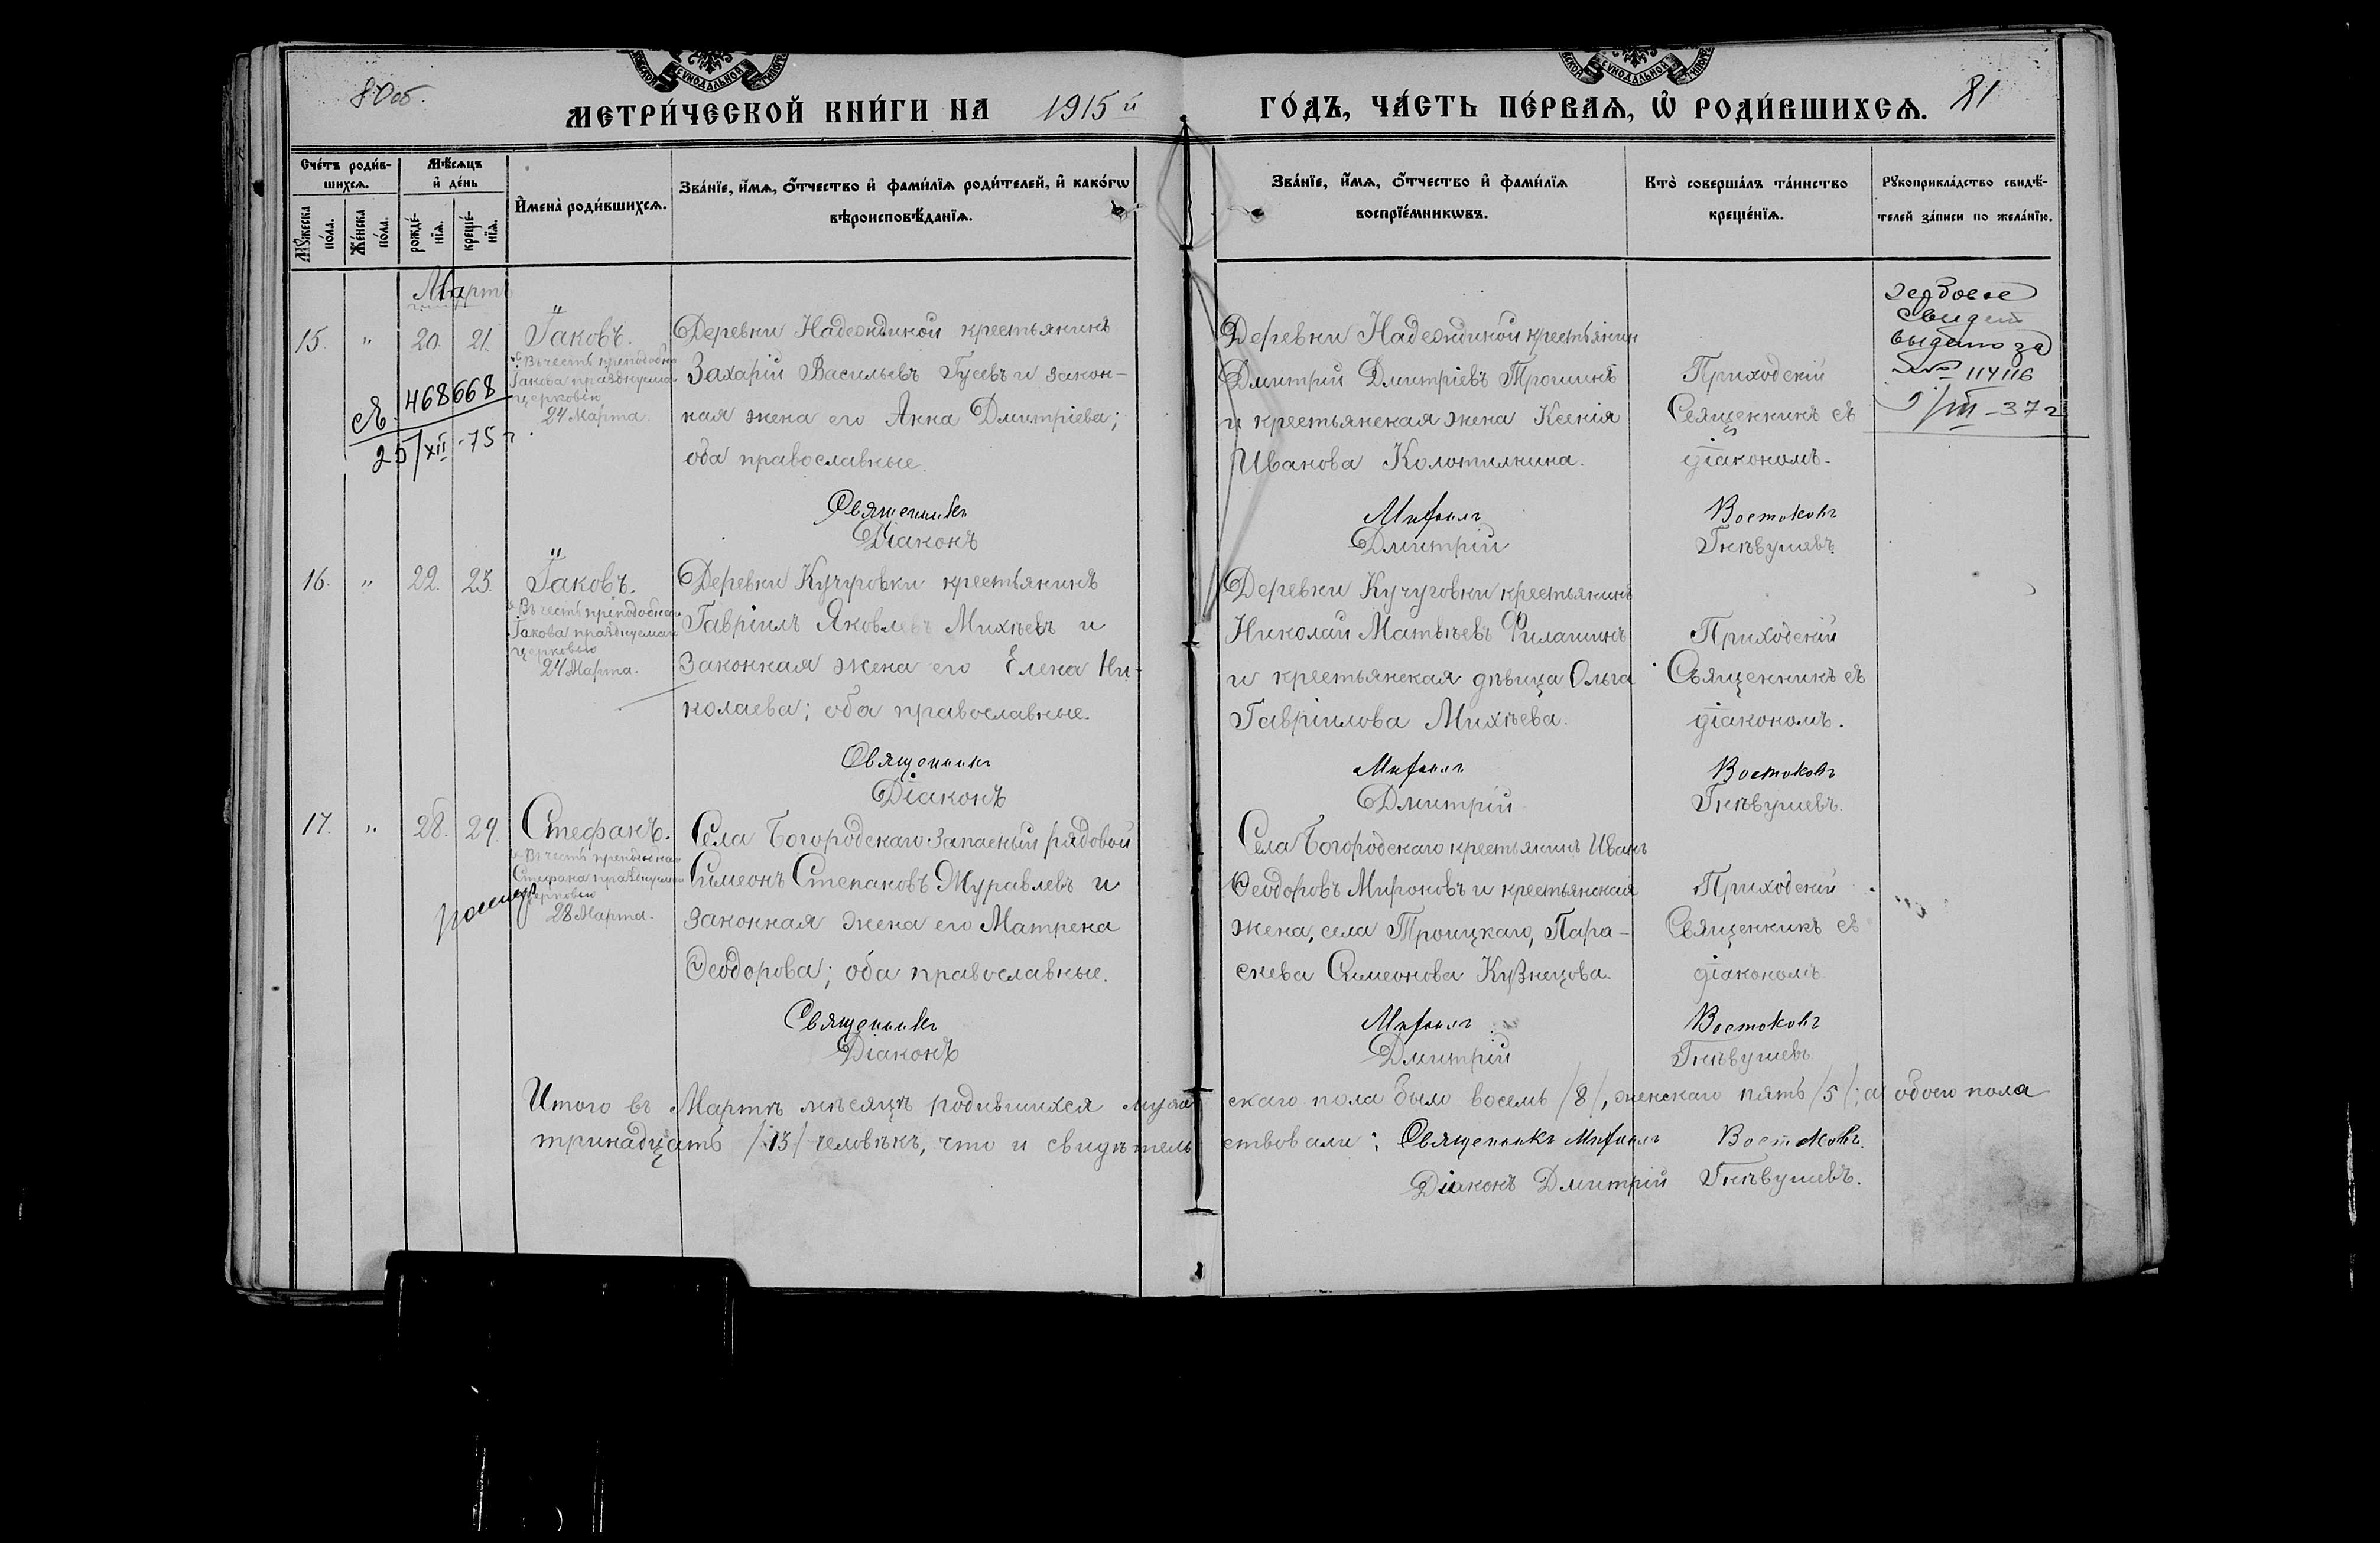 80об.
МЕТРИ́ЧЕСКОЙ КНИ́ГИ НА 1915й
ГО́ДЪ, ЧА́СТЬ ПЕ́РВАѦ, Ѽ РОДИ́ВШИХСѦ.
81
Сче́тъ роди́в-
шихсѧ.
Мꙋ́жеска
по́ла.
Же́нска
по́ла.
Мѣ́сѧцъ
и҆ де́нь
рожде́-
нїѧ.
креще́-
нїѧ.
И҆мена̀ роди́вшихсѧ.
Зва́нїе, и҆́мѧ, о҆́тчество и҆ фами́лїѧ роди́телей, и҆ како́гѡ
вѣроисповѣ́данїѧ.
Зва́нїе, и҆́мѧ, о҆́тчество и҆ фами́лїѧ
воспрїе́мникѡвъ.
Кто̀ соверша́лъ та́инство
креще́нїѧ.
Рꙋкоприкла́дство свидѣ́-
телей за́писи по жела́нїю.
Мартъ
15. " 20. 21. Іаковъ.
Въ честь преподобн.
Іакова празднуема
церковію
24 Марта.
468668
25/XII-75 г.
Деревни Надеждиной крестьянинъ
Захарій Васильевъ Гусевъ и закон-
ная жена его Анна Дмитріева;
оба православные.
Деревни Надеждиной крестьянин
Дмитрій Дмитріевъ Трошинъ
и крестьянская жена Ксенія
Иванова Колотилкина.
Приходскій
Священникъ съ
діакономъ.
гербовое
свидет
выдано за
№ 114116
9/III-37 г
Священникъ Михаилъ Востоковъ
Діаконъ Дмитрій Гнѣвушевъ.
16. " 22. 23. Іаковъ.
Въ честь преподобнаго
Іакова празднуемаго
церковью
24 Марта.
Деревни Кучуговки крестьянинъ
Гавріилъ Яковлевъ Михѣевъ и
законная жена его Елена Ни-
колаева; оба православные.
Деревни Кучуговки крестьянинъ
Николай Матвѣевъ Филашинъ
и крестьянская дѣвица Ольга
Гавріилова Михѣева.
Приходскій
Священникъ съ
діакономъ.
Священникъ Михаилъ Востоковъ
Діаконъ Дмитрій Гнѣвушевъ.
17. " 28. 29. Стефанъ.
Въ честь преподобнаго
Стефана празднуемаго
церковію
28 Марта.
Села Богородскаго запасный рядовой
Симеонъ Степановъ Журавлевъ и
законная жена его Матрена
Ѳеодорова; оба православные.
Села Богородскаго крестьянинъ Иванъ
Ѳеодоровъ Мироновъ и крестьянская
жена, села Троицкаго, Пара-
скева Симеонова Кузнецова.
Приходскій
Священникъ съ
діакономъ.
Священникъ Михаилъ Востоковъ
Діаконъ Дмитрій Гнѣвушевъ
Итого въ Мартѣ мѣсяцѣ родившихся мужескаго пола было восемь /8/, женскаго пять /5/; а обоего пола
тринадцать /13/ человѣкъ, что и свидѣтельствовали: Священникъ Михаилъ Востоковъ.
Діаконъ Дмитрій Гнѣвушевъ.